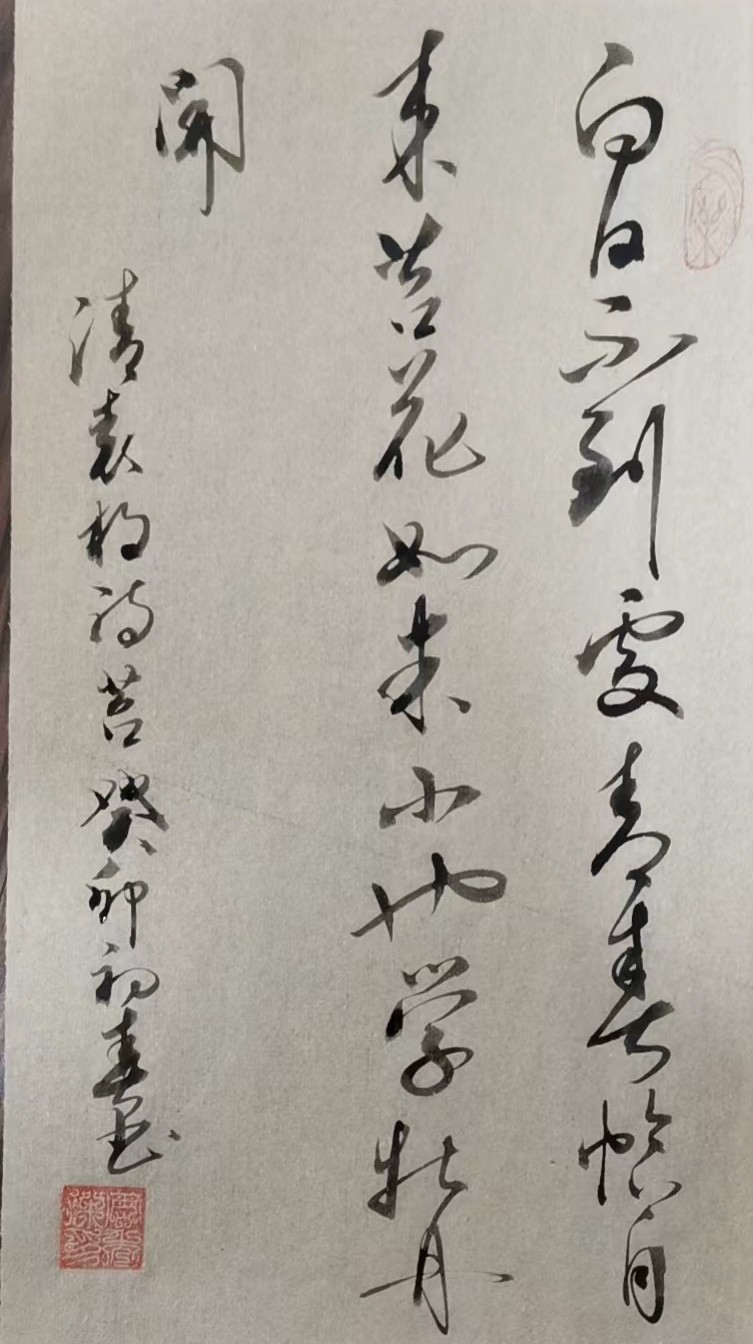 白日不到處青春恰自
来苔花如米小也学牡丹
開
清袁枚诗苔癸卯初春书